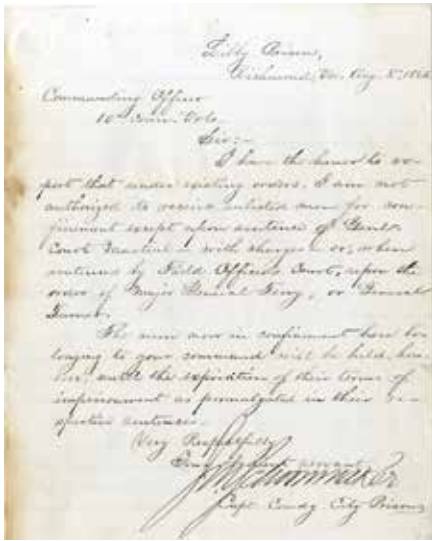 Libby Prison,
Richmond, Va. Aug. 8th, 1865
Commanding Officer
10th Conn. Vols.
Sir:-
I have the honor to re-
port that under existing orders, I am not
authorized to receive enlisted men for con-
finement except upon sentence of Genl.
Court Martial or with charges or, when
sentence by Field Officers Court, upon the
order of Major General Terry, or General
Turner.
The men now in confinement here be-
longing to your command will be held, how-
ever, until the expiration of their terms of
imprisonment as promulgated in their re-
spective sentences.
Very Respectfully
Your obedient servant
Capt. Comdg. City Prisons